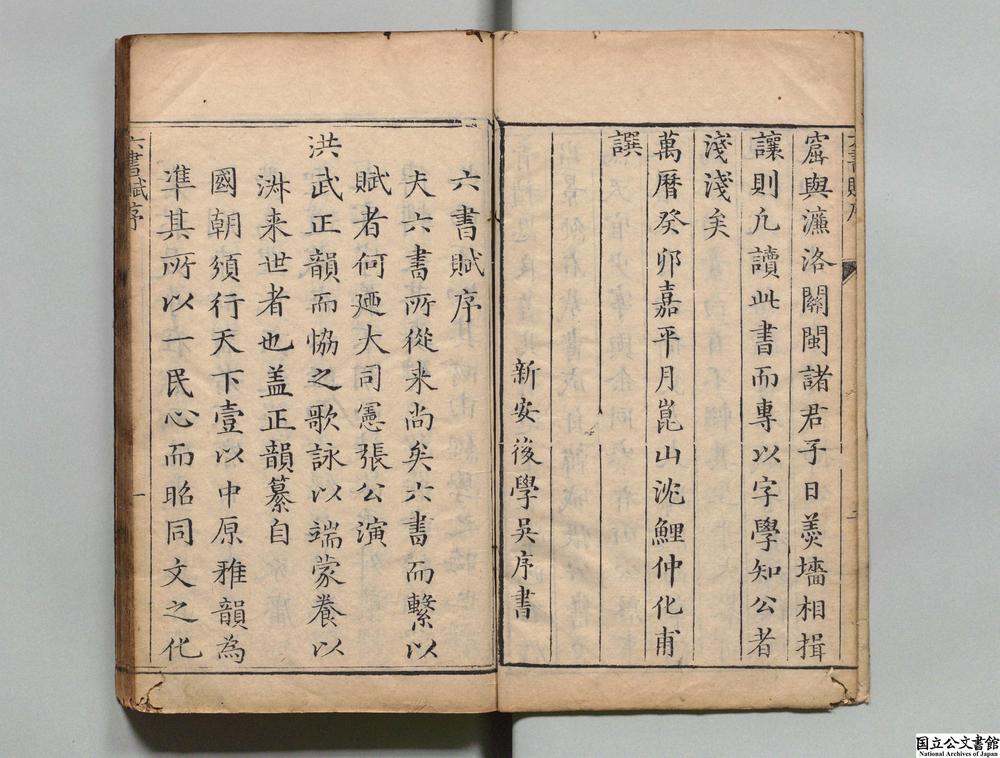 窟與濂洛關閩諸君子日羮墻相揖
讓則凢讀此書而專以字學知公者
淺淺矣
萬曆癸卯嘉平月崑山沈鯉仲化甫
譔
新安後學吳序書
六書賦序
夫六書所從来尚矣六書而繫以
賦者何廼大司憲張公演
洪武正韻而恊之歌詠以端蒙養以
淑来世者也盖正韻纂自
國朝須行天下壹以中原雅韻為
凖其所以一民心而昭同文之化
六書賦序
一
国立公文書館
National Archives of Japan